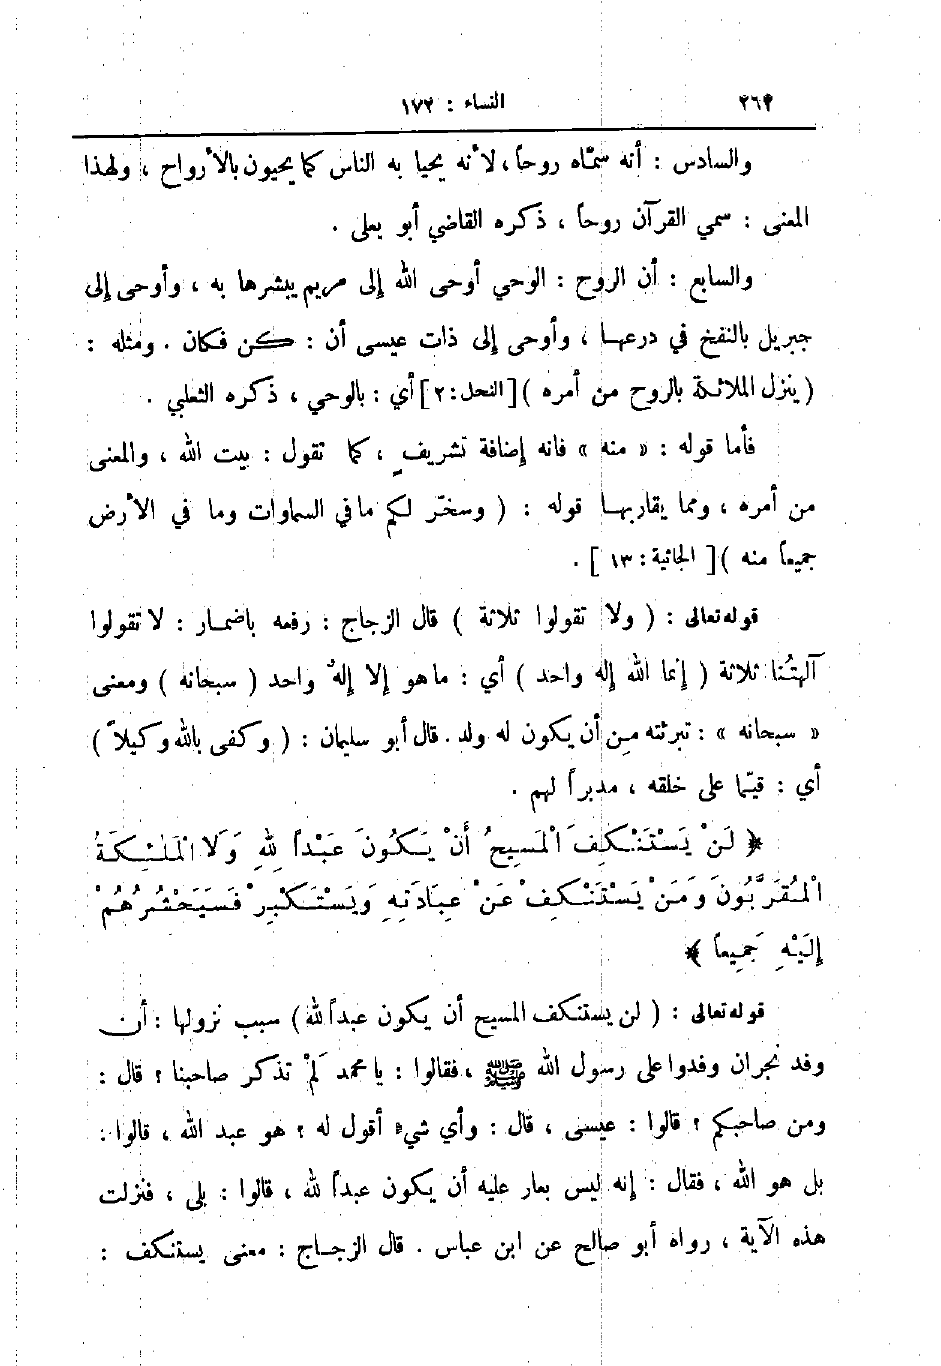 ٢٦٢ النساء : ١٧٢
والسادس : أنه سمّاه روحاً، لأنه يحيا به الناس كما يحيون بالأرواح ، ولهذا
المعنى : سمي القرآن روحاً ، ذكره القاضي أبو يعلى .
والسابع : أن الروح : الوحي أوحى الله إلى مريم يبشرها به ، وأوحى إلى
جبريل بالنفخ في درعها ، وأوحى إلى ذات عيسى أن : كن فكان . ومثله :
( ينزل الملائكة بالروح من أمره )[النحل:٢] أي : بالوحي ، ذكره الثعلبي .
فأما قوله : « منه » فانه إضافة تشريفٍ ، كما تقول : بيت الله ، والمعنى
من أمره ، ومما يقاربها قوله : ( وسخّر لكم ما في السماوات وما في الأرض
جميعاً منه )[ الجاثية : ١٣ ] .
قوله تعالى : ( ولا تقولوا ثلاثة ) قال الزجاج : رفعه باضمار : لا تقولوا
آلهتُنا ثلاثة ( إنما الله إله واحد ) أي : ما هو إلا إلهُ واحد ( سبحانه ) ومعنى
« سبحانه » : تبرئته من أن يكون له ولد . قال أبو سليمان : ( وكفى بالله وكيلاً )
أي : قيّما على خلقه ، مدبراً لهم .
﴿ لَنْ يَسْتَنْكِفَ الْمَسِيحُ أَنْ يَكُونَ عَبْداً لِلهِ وَلَا الْمَلٰئِكَةُ
الْمُقَرَّبُونَ وَمَنْ يَسْتَنْكِفْ عَنْ عِبَادَتِهِ وَيَسْتَكْبِرْ فَسَيَحْشُرُهُمْ
إِلَيْهِ جَمِيعاً ﴾
قوله تعالى : ( لن يستنكف المسيح أن يكون عبداً لله ) سبب نزولها : أن
وفد نجران وفدوا على رسول الله ﷺ ، فقالوا : يا محمد لَمْ تذكر صاحبنا ؟ قال :
ومن صاحبكم ؟ قالوا : عيسى ، قال : وأي شيء أقول له ؟ هو عبد الله ، قالوا :
بل هو الله ، فقال : إنه ليس بعار عليه أن يكون عبداً لله ، قالوا : بلى ، فنزلت
هذه الآية ، رواه أبو صالح عن ابن عباس . قال الزجاج : معنى يستنكف :